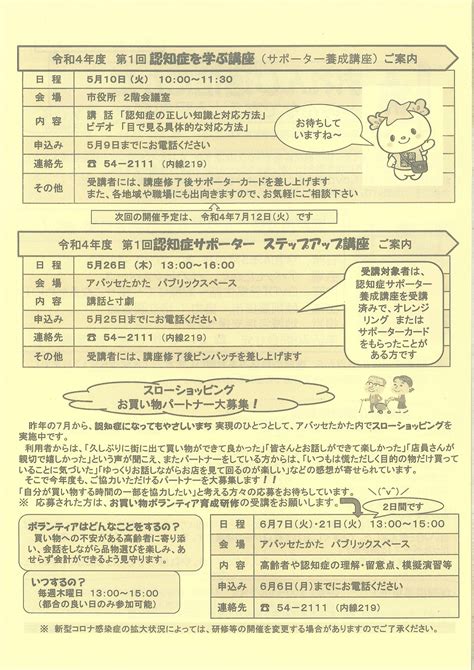 令和4年度 第1回 認知症を学ぶ講座（サポーター養成講座）ご案内
日 程 5月10日(火) 10:00～11:30
会 場 市役所 2階会議室
内 容 講 話「認知症の正しい知識と対応方法」
ビデオ「目で見る具体的な対応方法」
申込み 5月9日までにお電話ください
連絡先 ☎ 54-2111 (内線219)
その他 受講者には、講座修了後サポーターカードを差し上げます
また、各地域や職場にも出向きますので、お気軽にご相談下さい
お待ちして
いますね～
次回の開催予定は、令和4年7月12日(火) です
令和4年度 第1回認知症サポーター ステップアップ講座 ご案内
日 程 5月26日 (木) 13:00～16:00
会 場 アバッセたかた パブリックスペース
内 容 講話と寸劇
申込み 5月25日までにお電話ください
連絡先 ☎ 54-2111 (内線219)
その他 受講者には、講座修了後ピンバッチを差し上げます
受講対象者は、
認知症サポーター
養成講座を受講
済みで、オレンジ
リング または
サポーターカード
をもらったことが
ある方です
スローショッピング
お買い物パートナー大募集！
昨年の7月から、認知症になってもやさしいまち 実現のひとつとして、アバッセたかた内でスローショッピングを
実施中です。
利用者からは、「久しぶりに街に出て買い物ができて良かった」「皆さんとお話しができて楽しかった」「店員さんが
親切で嬉しかった」という声が聞こえ、またパートナーをしている方からは、「いつもは慌ただしく目的の物だけ買って
いることに気づいた」「ゆっくりお話しながらお店を見て回るのが楽しい」などの感想が寄せられています。
そこで今年度も、ご協力いただけるパートナーを大募集します！！
「自分が買い物する時間の一部を協力したい」と考える方々の応募をお待ちしています。
※ 応募された方は、お買い物ボランティア育成研修の受講をお願いします。
2日間です
ボランティアはどんなことをするの？
買い物への不安がある高齢者に寄り添
い、会話をしながら品物選びを楽しみ、あ
せらず会計ができるよう見守ります。
いつするの？
毎週木曜日 13:00～15:00
(都合の良い日のみ参加可能)
日 程 6月7日(火)・21日(火) 13:00～15:00
会 場 アバッセたかた パブリックスペース
内 容 高齢者や認知症の理解・留意点、模擬演習等
申込み 6月6日(月)までにお電話ください
連絡先 ☎ 54-2111 (内線219)
※ 新型コロナ感染症の拡大状況によっては、研修等の開催を変更する場合がありますのでご了承ください。